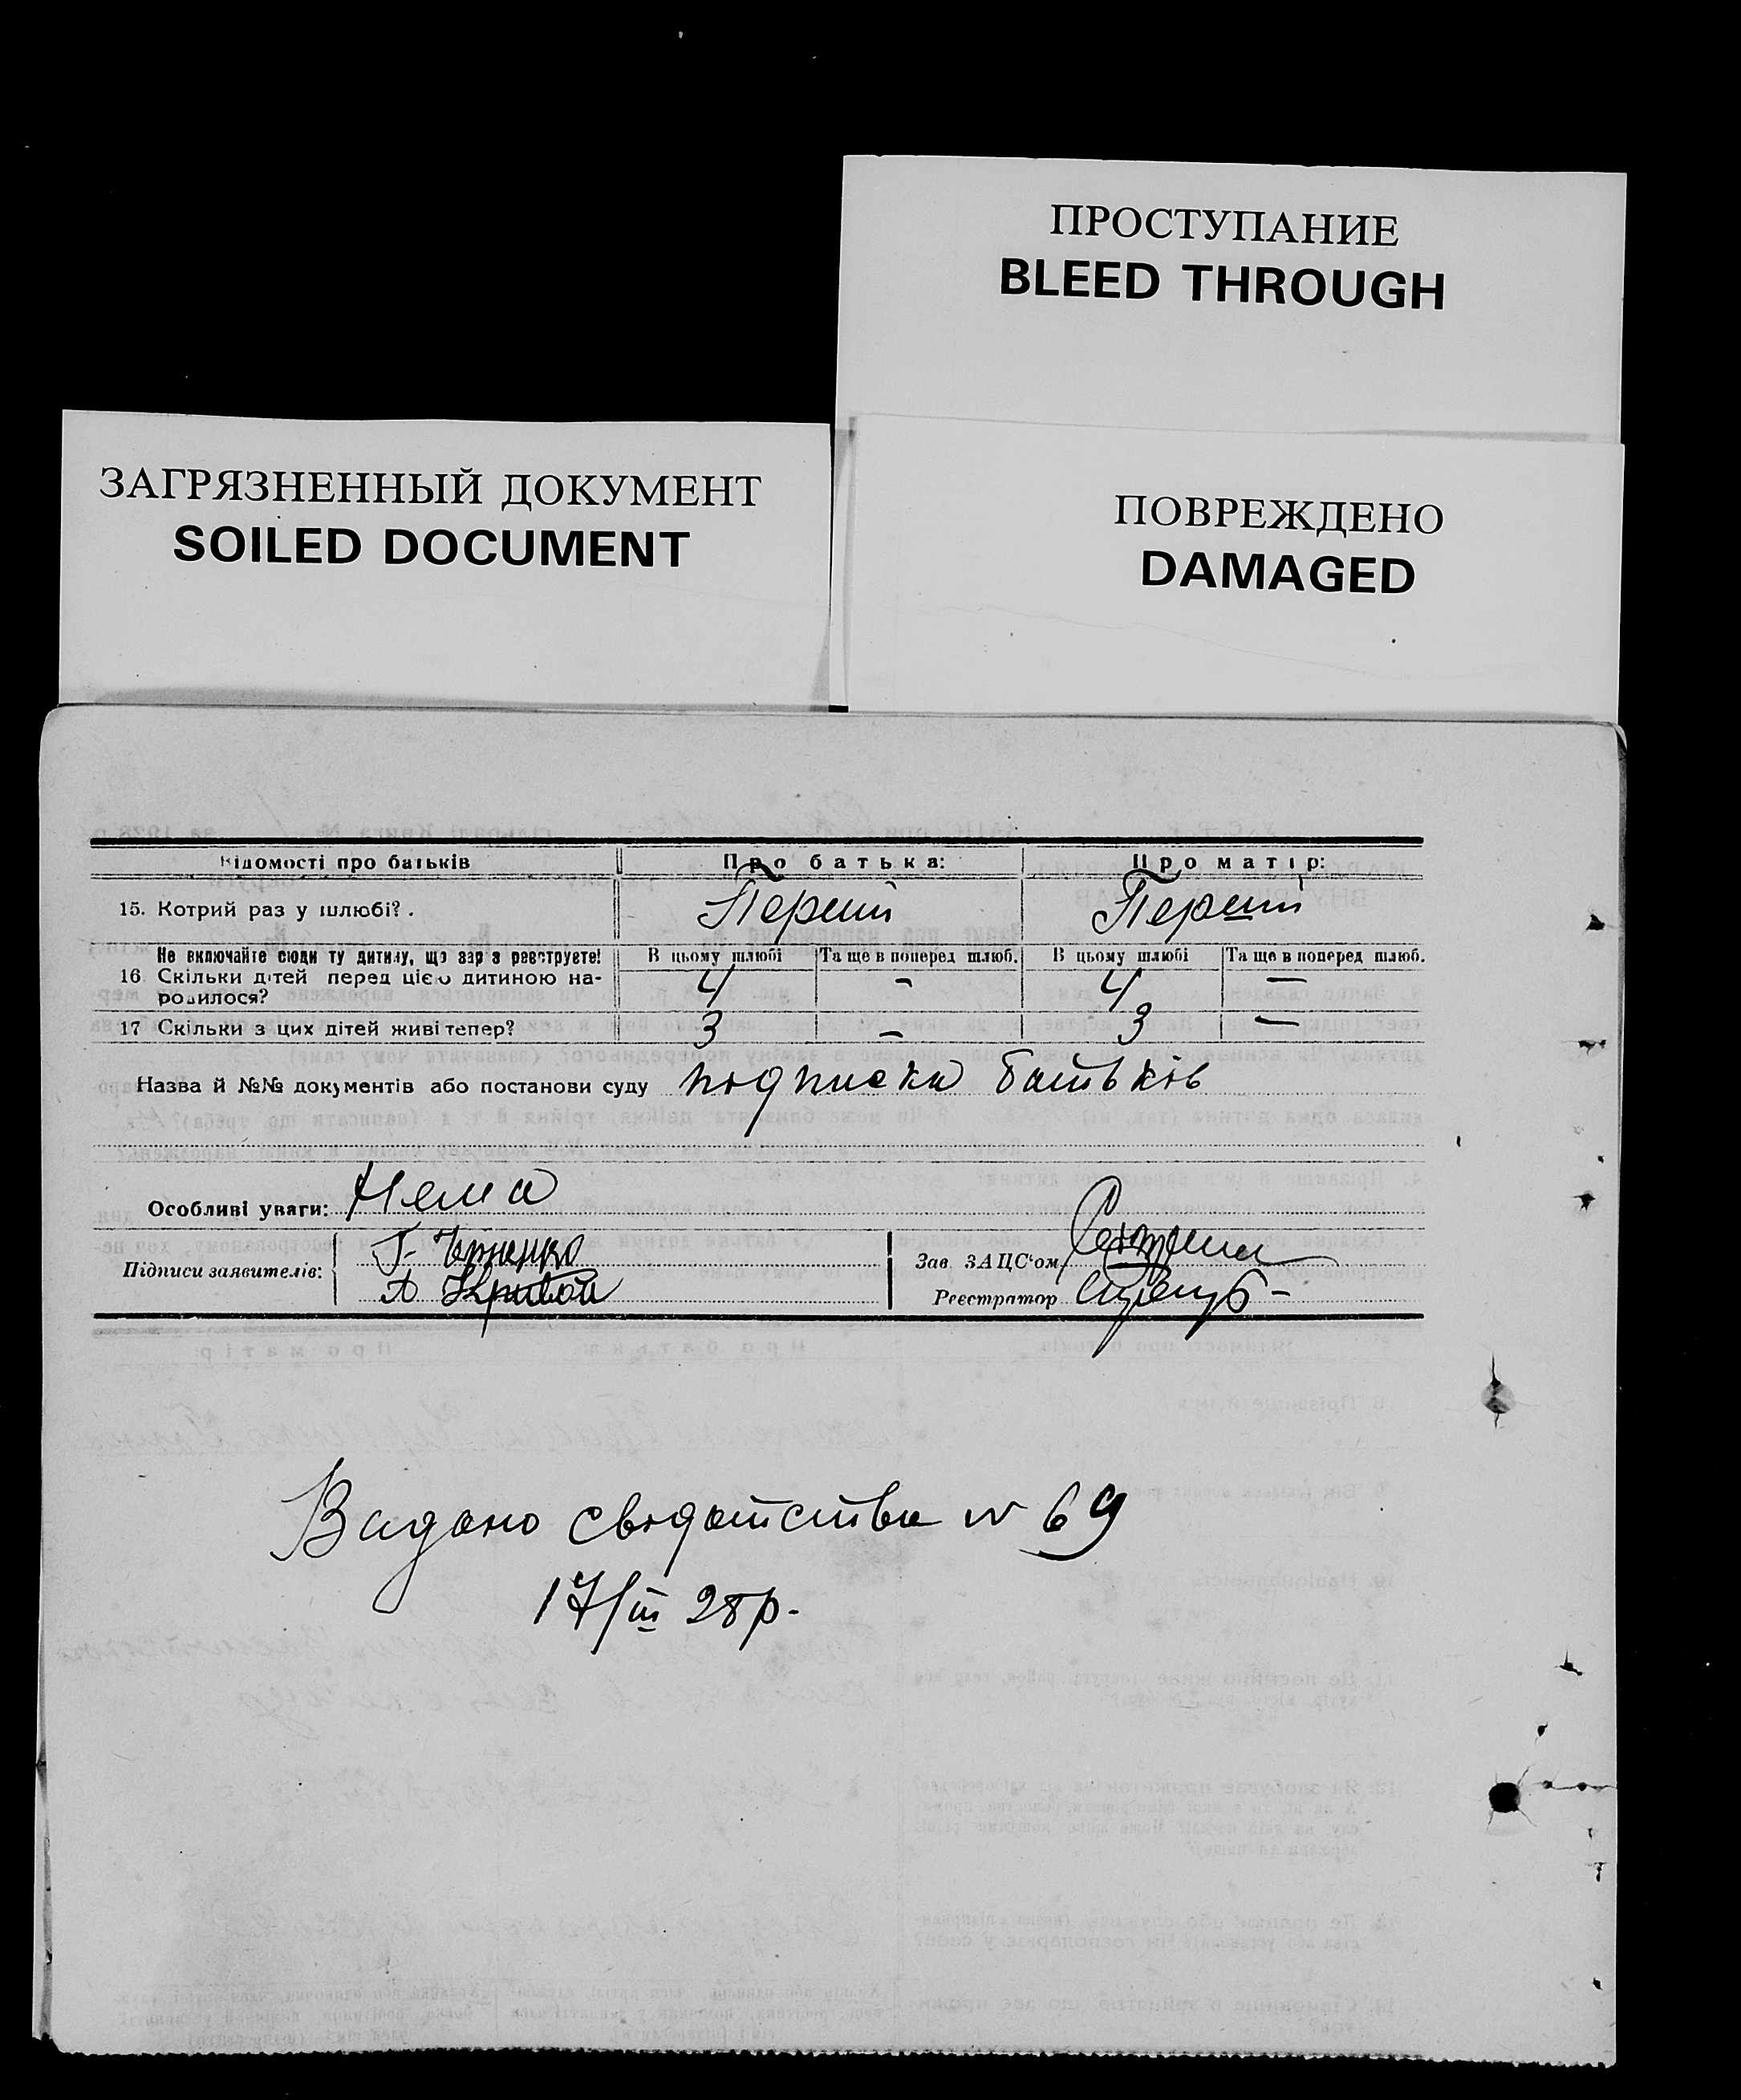 ПРОСТУПАНИЕ
BLEED THROUGH
ЗАГРЯЗНЕННЫЙ ДОКУМЕНТ
SOILED DOCUMENT
ПОВРЕЖДЕНО
DAMAGED
Відомості про батьків Про батька: Про матір:
15. Котрий раз у шлюбі? . Перший Перший
Не включайте сюди ту дитину, що зараз реєструєте! В цьому шлюбі Та ще в поперед шлюб. В цьому шлюбі Та ще в поперед шлюб.
16. Скільки дітей перед цією дитиною на-
родилося? 4 – 4 –
17 Скільки з цих дітей живі тепер? 3 – 3 –
Назва й №№ документів або постанови суду подписка батьків
Особливі уваги: Нема
Підписи заявителів: Г.
А Кривой
Зав. ЗАЦС'ом
Реєстратор
Видано свідотство № 69
17/III 28 р.